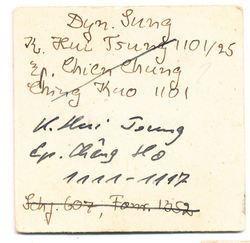 Dyn. Sung
K. Hui Tsung 1101/25
Ep. Chien Chung
Ching Kuo 1101
K. Hui Tsung
Ep. Chêng Ho
1111-1117
Schj. 607, Fom. 1052